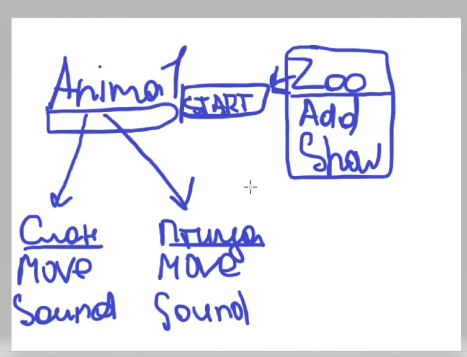 Animal
START
Zoo
Add
Show
Слон
Move
Sound
Птица
Move
Sound